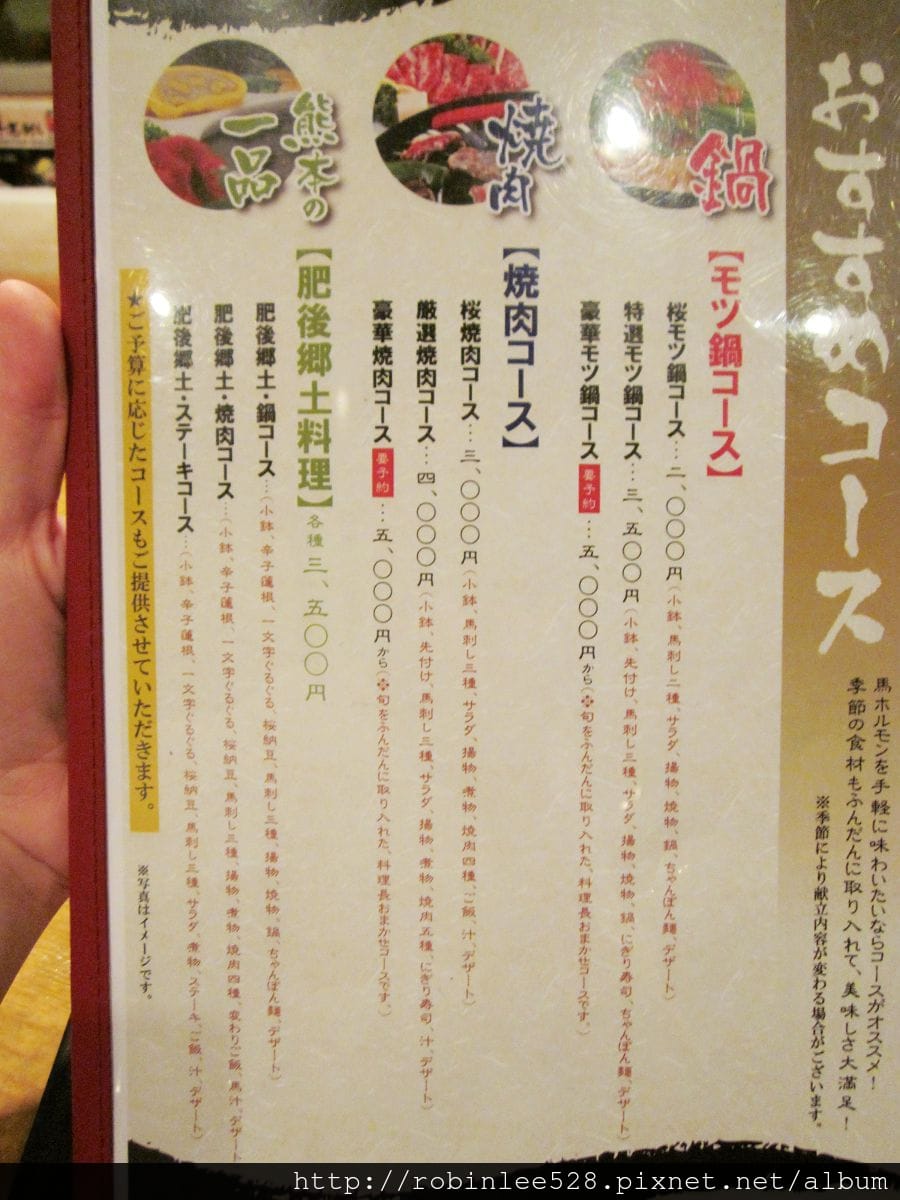 おすすめコース
馬ホルモンを手軽に味わいたいならコースがオススメ！
季節の食材もふんだんに取り入れて、美味しさ大満足！
※季節により献立内容が変わる場合がございます。
鍋
【モツ鍋コース】
桜モツ鍋コース…二、〇〇〇円（小鉢、馬刺し二種、サラダ、揚物、焼物、鍋、ちゃんぽん麺、デザート）
特選モツ鍋コース…三、五〇〇円（小鉢、先付け、馬刺し三種、サラダ、揚物、焼物、鍋、にぎり寿司、ちゃんぽん麺、デザート）
豪華モツ鍋コース 要予約 …五、〇〇〇円から（※旬をふんだんに取り入れた、料理長おまかせコースです。）
焼肉
【焼肉コース】
桜焼肉コース…三、〇〇〇円（小鉢、馬刺し三種、サラダ、揚物、煮物、焼肉四種、ご飯、汁、デザート）
厳選焼肉コース…四、〇〇〇円（小鉢、先付け、馬刺し三種、サラダ、揚物、煮物、焼肉五種、にぎり寿司、汁、デザート）
豪華焼肉コース 要予約 …五、〇〇〇円から（※旬をふんだんに取り入れた、料理長おまかせコースです。）
熊本の
一品
【肥後郷土料理】各種 三、五〇〇円
肥後郷土・鍋コース…（小鉢、辛子蓮根、一文字ぐるぐる、桜納豆、馬刺し三種、揚物、焼物、鍋、ちゃんぽん麺、デザート）
肥後郷土・焼肉コース…（小鉢、辛子蓮根、一文字ぐるぐる、桜納豆、馬刺し三種、揚物、煮物、焼肉四種、変わりご飯、馬汁、デザート
肥後郷土・ステーキコース…（小鉢、辛子蓮根、一文字ぐるぐる、桜納豆、馬刺し三種、サラダ、煮物、ステーキ、ご飯、汁、デザート）
★ご予算に応じたコースもご提供させていただきます。
※写真はイメージです。
http://robinlee528.pixnet.net/album